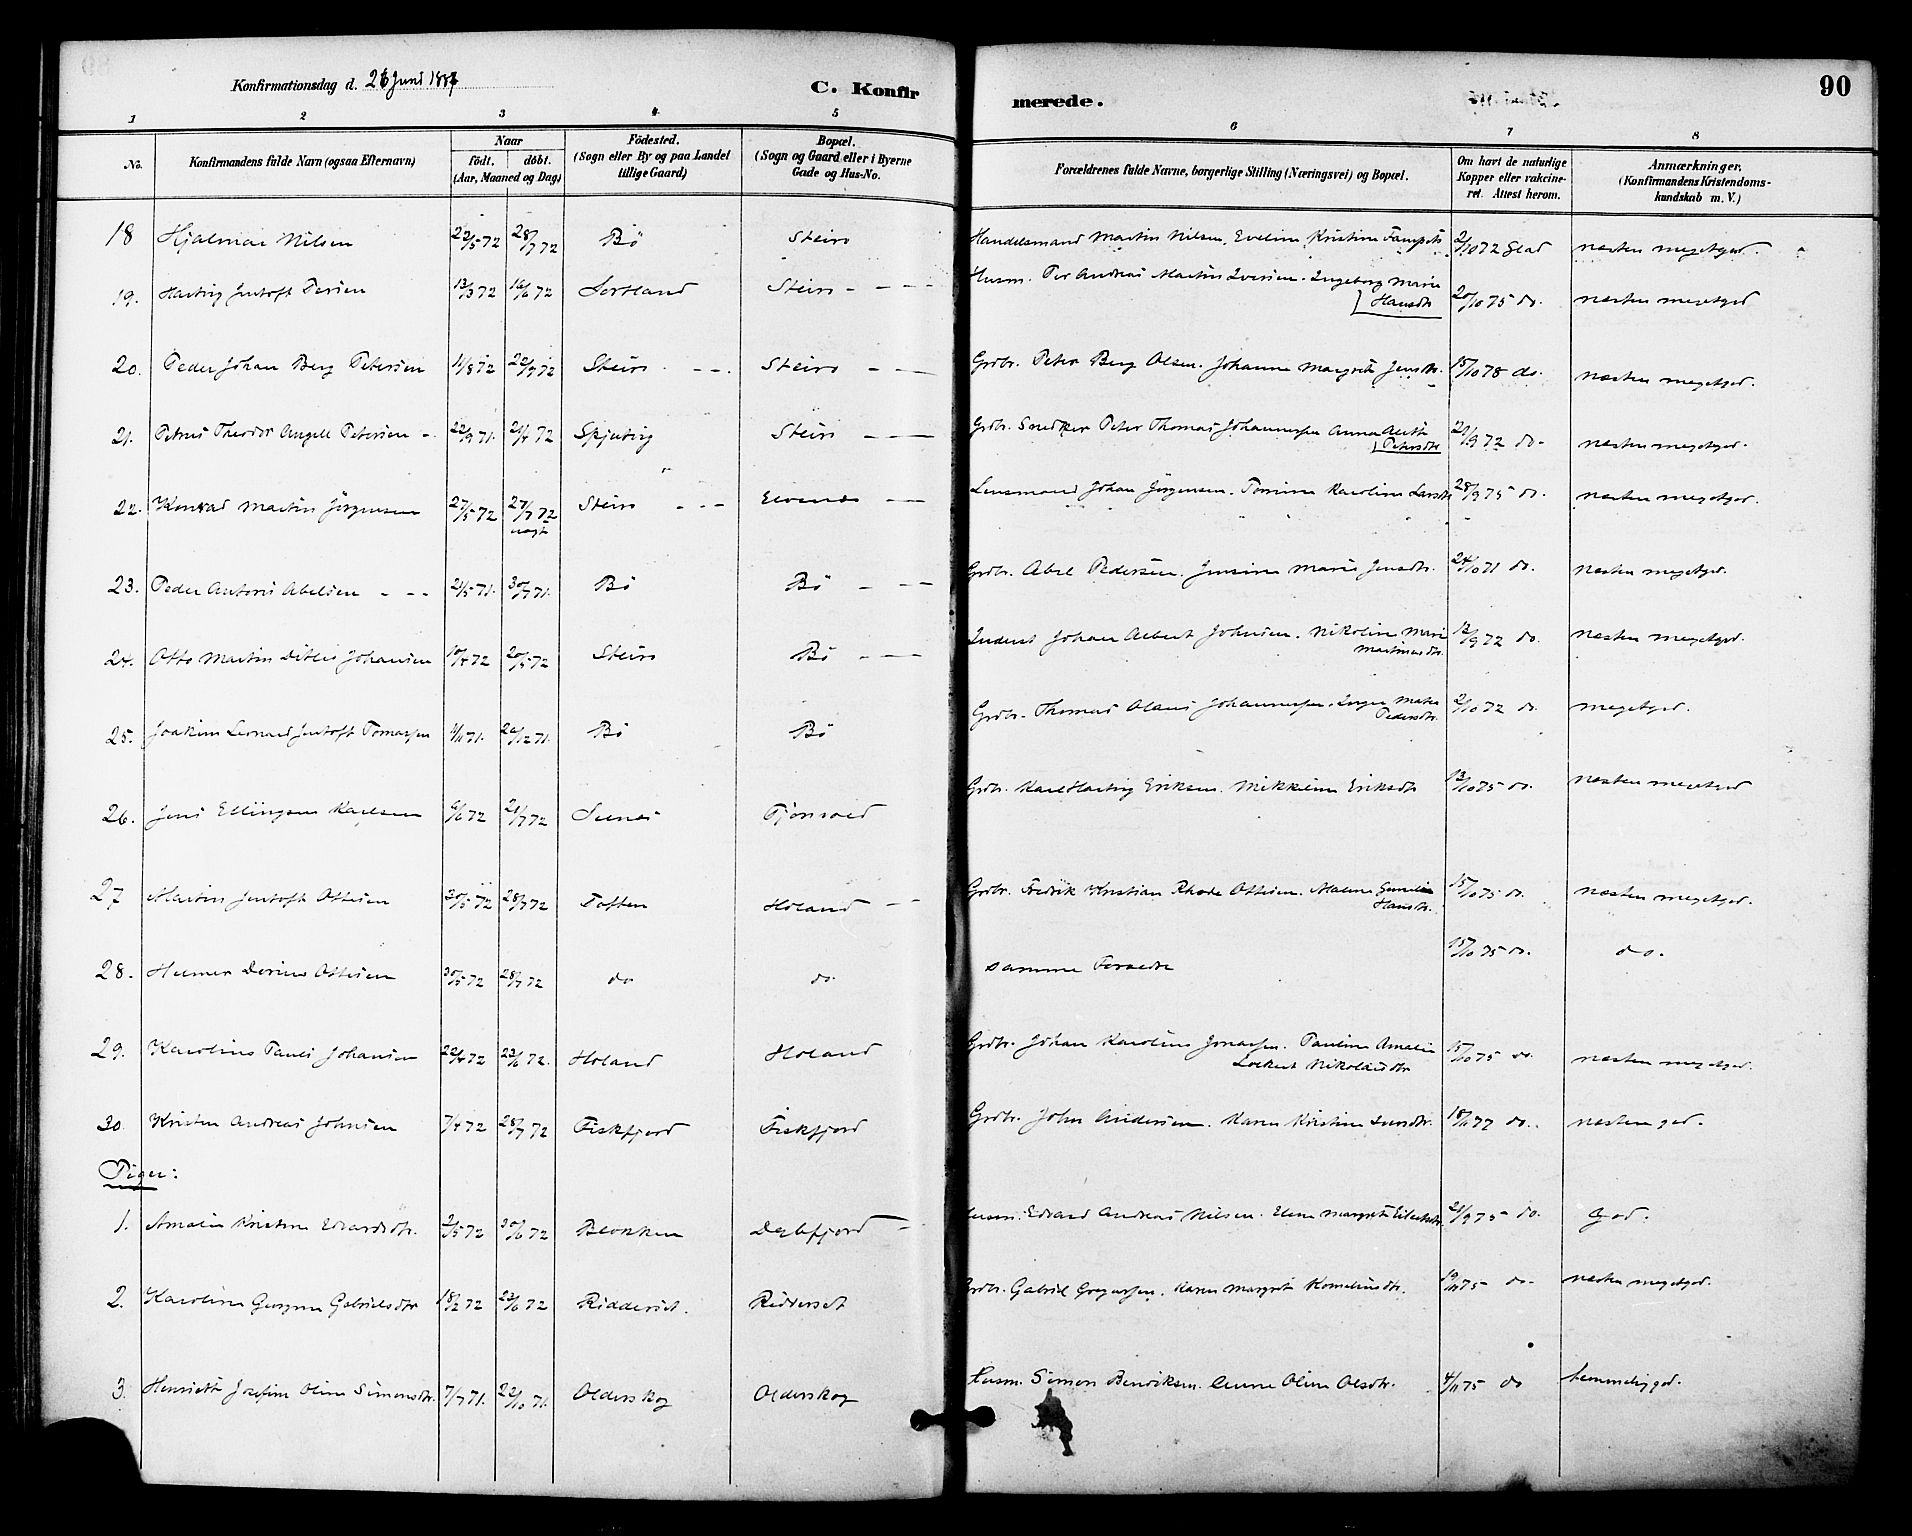 Konfirmationsdag d. 26 Juni 1887
C. Konfirmerede.
90
1 2 3 4 5 6 7 8
No. Konfirmandens fulde Navn (ogsaa Efternavn) Naar födt. döbt. (Aar, Maaned og Dag) Födested. (Sogn eller By og paa Landet tillige Gaard) Bopæl. (Sogn og Gaard eller i Byerne Gade og Hus-No. Forældrenes fulde Navne, borgerlige Stilling (Næringsvei) og Bopæl. Om havt de naturlige Kopper eller vakcineret. Attest herom. Anmærkninger, (Konfirmandens Kristendomskundskab m. V.)
18 Hjalmar Nilsen 22/5 72 28/7 72 Bö Steiro Handelsmand Martin Nilsen, Eveline Kristine 2/10 72 Glad næsten megetgod.
19. Hartvig Jentoft Persen 13/3 72 16/6 72 Sortland Steiro Husm. Per Andreas Martin Iversen. Ingeborg Marie Hansdtr 20/10 75 do. næsten megetgod
20. Peder Johan Berg Petersen 11/3 72 22/7 72 Steiro Steiro Grdbr. Peter Berg Olsen. Johanna Margrete Jensdtr. 15/10 78 do. næsten megetgod.
21. Petrus Theodor Angell Petersen 22/9 71. 21/4 72 Steiro Grdbr. Snedker Peter Thomas Johannessen Anna Aleth Petersdtr 21/9 72 do. næsten megetgod.
22. Konrad Martin Jörgensen 27/5 72 27/7 72 Steiro Elvenes Lensmand Johan Jörgensen. Karoline Larsdtr 28/9 75 do. næsten megetgod.
23. Peder Antoni Abelsen 21/5 71. 30/7 71. Bö Bö Grdbr. Abel Pedersen. Jensine Marie Jensdtr. 24/10 71 do. næsten megetgod.
24. Otto Martin Ditlev Johansen 10/4 72 20/5 72 Steiro Bö Inderst Johan Albert Johnsen. Nikoline Marie Martinusdtr. 12/9 72 do. næsten megetgod.
25. Joakim Leonard Jentoft Tomassen 1/11 71. 26/12 71. Bö Bö Grdbr. Thomas Olaus Johannessen. Pedersdtr. 2/10 72 do. megetgod.
26. Jens Ellingsen Karlsen 6/6 72 21/7 72 Grdbr. Karl Hartvig Eriksen. Mikkeline Eriksdtr 13/10 75 do. næsten megetgod
27 Martin Jentoft Ottesen 30/5 72 28/7 72 Toften Holand Grdbr. Fredrik Kristian Rhode Ottesen. Malene Hansdtr. 15/10 75 do. næsten megetgod.
28. Helmer Ottesen 30/5 72 28/7 72 do do. samme Foreldre 15/10 75 do. do.
29. Karolius Pauli Johansen 22/4 72 23/6 72. Holand Holand Grdbr. Johan Karolius Jonassen. Pauline Amalie Lockert Nikolaisdtr 15/10 75 do. næsten megetgod.
30. Kristen Andreas Johnsen 7/4 72 28/7 72 Fiskfjord Fiskfjord Grdbr. John Andersen. Karen Kristine 18/11 77 do. næsten god.
Piger:
1. Amalie Kristine Edvardsdtr. 2/5 72 30/6 72 Blokken Husm. Edvard Andreas Nilsen. Elen Margrete 21/9 75 do. God.
2. Karoline Gabrielsdtr 18/2 72 23/6 72 Ridderset. Ridderset Grdbr. Gabriel Gregersen. Karen Margrete Korneliusdtr. 19/11 75 do. næsten megetgod.
3. Henriette Josefine Oline Simonsdtr. 7/7 71. 22/10 71. Olderskog Olderskog Husm. Simon Benriksen. Anne Oline Olsdtr. 4/11 75 do temmelig god.